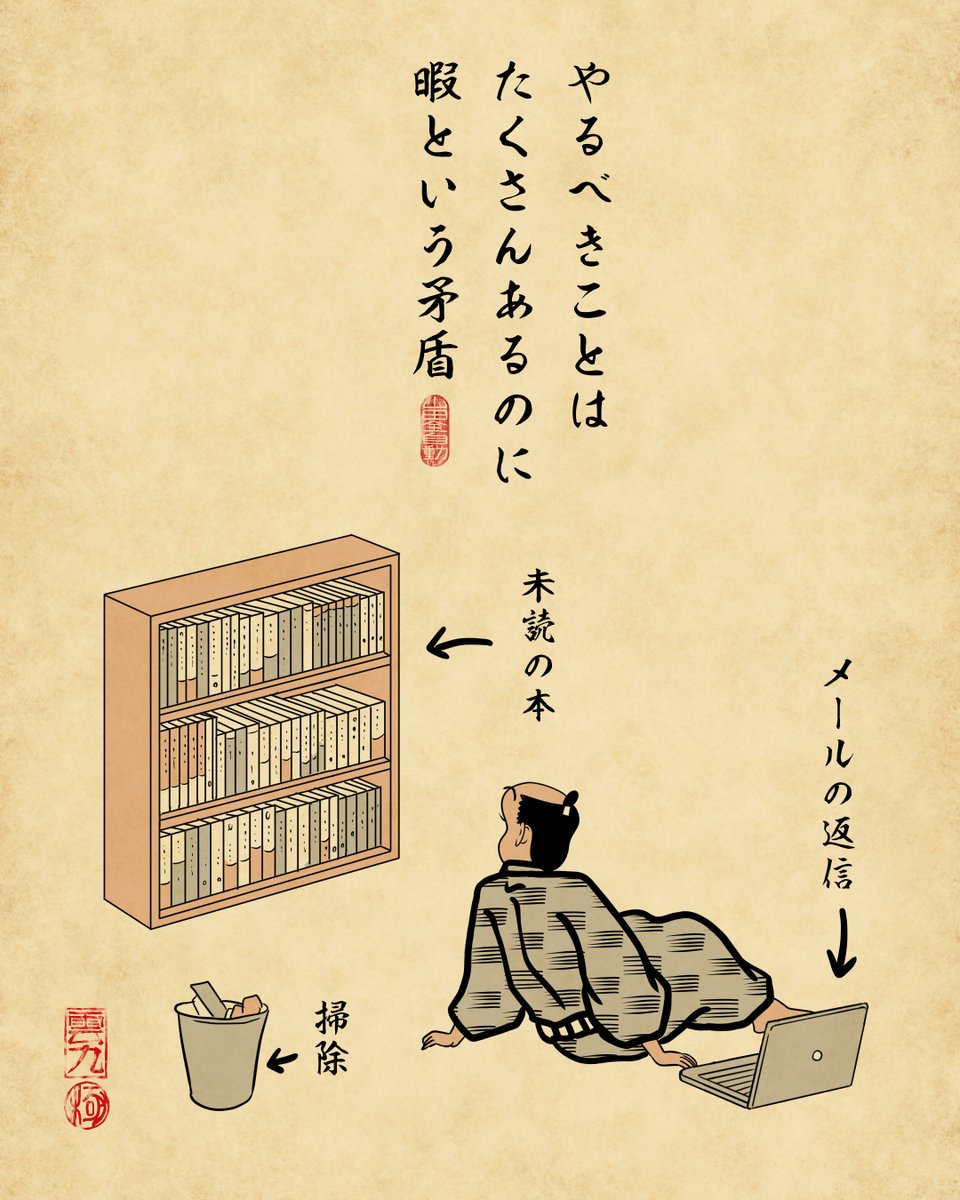 やるべきことは
たくさんあるのに
暇という矛盾
未読の本
メールの返信
掃除